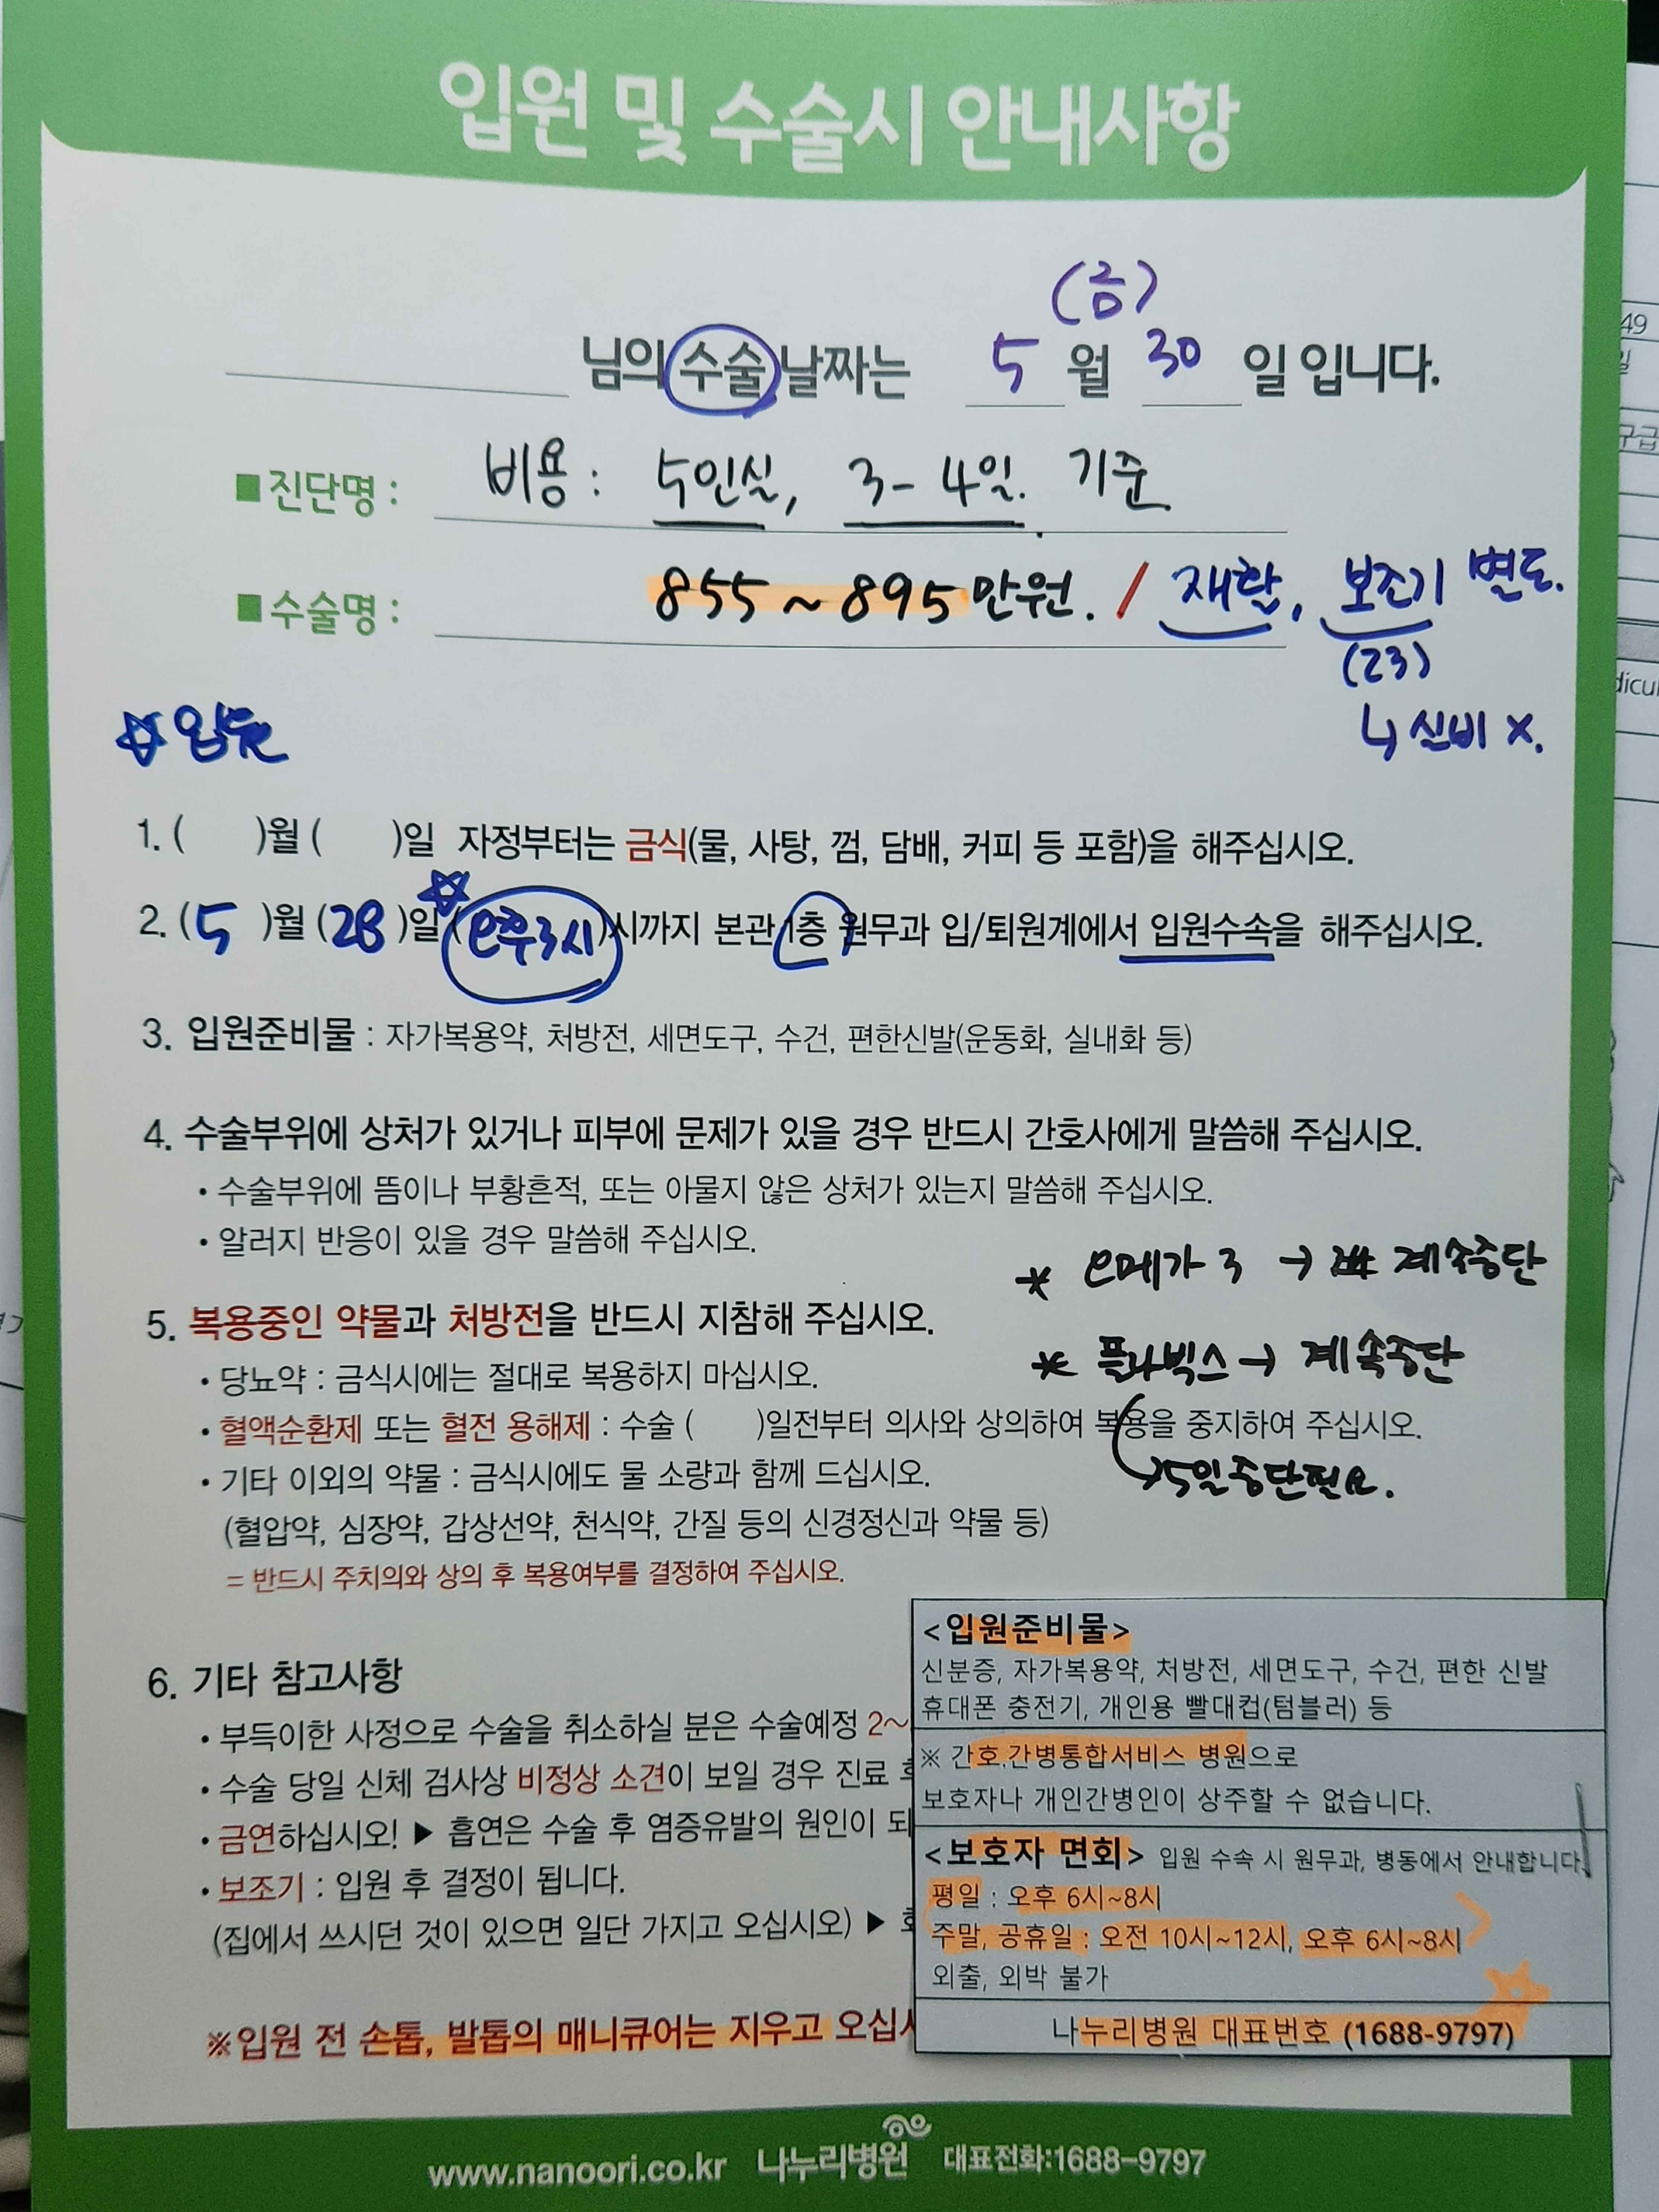 입원 및 수술시 안내사항
(금)
님의 수술 날짜는 5월 30일 입니다.
■ 진단명 : 비용 : 5인실, 3-4일. 기준
■ 수술명 : 855~895만원. / 재활, 보조기 별도.
(23)
↳ 실비 X.
☆입원
1. ( )월 ( )일 자정부터는 금식(물, 사탕, 껌, 담배, 커피 등 포함)을 해주십시오.
2. (5)월 (28)일 (오후3시)시까지 본관 1층 원무과 입/퇴원계에서 입원수속을 해주십시오.
3. 입원준비물 : 자가복용약, 처방전, 세면도구, 수건, 편한신발(운동화, 실내화 등)
4. 수술부위에 상처가 있거나 피부에 문제가 있을 경우 반드시 간호사에게 말씀해 주십시오.
• 수술부위에 뜸이나 부황흔적, 또는 아물지 않은 상처가 있는지 말씀해 주십시오.
• 알러지 반응이 있을 경우 말씀해 주십시오.
* 오메가 3 → 계속중단
5. 복용중인 약물과 처방전을 반드시 지참해 주십시오.
* 플라빅스 → 계속중단
• 당뇨약 : 금식시에는 절대로 복용하지 마십시오.
• 혈액순환제 또는 혈전 용해제 : 수술 ( )일전부터 의사와 상의하여 복용을 중지하여 주십시오.
↳5일중단필요.
• 기타 이외의 약물 : 금식시에도 물 소량과 함께 드십시오.
(혈압약, 심장약, 갑상선약, 천식약, 간질 등의 신경정신과 약물 등)
= 반드시 주치의와 상의 후 복용여부를 결정하여 주십시오.
6. 기타 참고사항
• 부득이한 사정으로 수술을 취소하실 분은 수술예정 2~
• 수술 당일 신체 검사상 비정상 소견이 보일 경우 진료
• 금연하십시오! ▶ 흡연은 수술 후 염증유발의 원인이 되
• 보조기 : 입원 후 결정이 됩니다.
(집에서 쓰시던 것이 있으면 일단 가지고 오십시오) ▶
※입원 전 손톱, 발톱의 매니큐어는 지우고 오십시
<입원준비물>
신분증, 자가복용약, 처방전, 세면도구, 수건, 편한 신발
휴대폰 충전기, 개인용 빨대컵(텀블러) 등
※ 간호.간병통합서비스 병원으로
보호자나 개인간병인이 상주할 수 없습니다.
<보호자 면회> 입원 수속 시 원무과, 병동에서 안내합니다.
평일 : 오후 6시~8시
주말, 공휴일 : 오전 10시~12시, 오후 6시~8시
외출, 외박 불가
나누리병원 대표번호 (1688-9797)
www.nanoori.co.kr 나누리병원 대표전화:1688-9797
49
구급